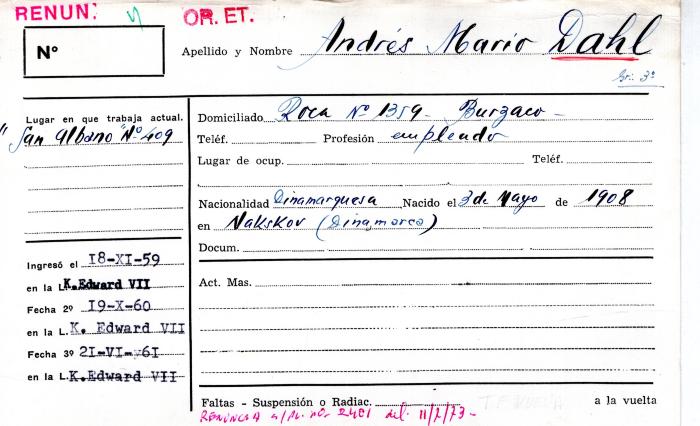 RENUN:
OR. ET.
Nº
Apellido y Nombre Andrés Mario Dahl
Gr: 3º
Lugar en que trabaja actual.
"San Albano" Nº 409
Domiciliado Roca Nº 1359 - Burzaco -
Teléf. Profesión empleado
Lugar de ocup. Teléf.
Nacionalidad Dinamarquesa Nacido el 3 de Mayo de 1908
en Nakskov (Dinamarca)
Docum.
Ingresó el 18-XI-59
en la L. K. Edward VII
Fecha 2º 19-X-60
en la L. K. Edward VII
Fecha 3º 21-VI-61
en la L. K. Edward VII
Act. Mas.
Faltas - Suspensión o Radiac. a la vuelta
RENUNCIA s/pl. nº 2481 del 11/7/73-